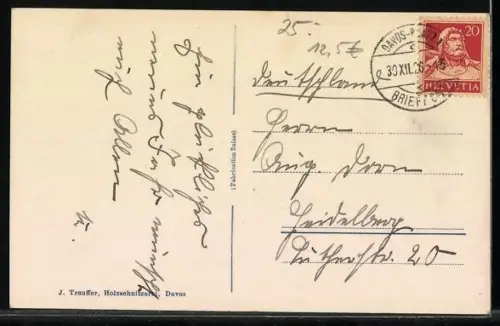 25.-
12,5€
DAVOS-P
30.XII.26
BRIEF
20
HELVETIA
Deutschland
Herrn
Aug. Dorn
Heidelberg
Lutherstr. 20
(Fabrication Suisse)
Ein glückliches
neues Jahr wünscht
euch Allen
J. Trauffer, Holzschnitzerei, Davos